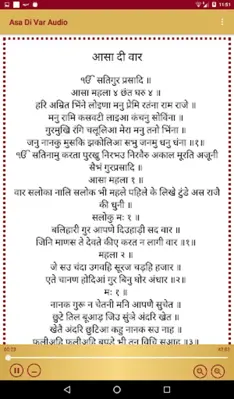 11:51
Asa Di Var Audio
आसा दी वार
ੴ सतिगुर प्रसादि ॥
आसा महला ४ छंत घरु ४ ॥
हरि अम्रित भिंने लोइणा मनु प्रेमि रतंना राम राजे ॥
मनु रामि कसवटी लाइआ कंचनु सोविंना ॥
गुरमुखि रंगि चलूलिआ मेरा मनु तनो भिंना ॥
जनु नानकु मुसकि झकोलिआ सभु जनमु धनु धंना ॥१॥
ੴ सतिनामु करता पुरखु निरभउ निरवैरु अकाल मूरति अजूनी
सैभं गुरप्रसादि ॥
आसा महला १ ॥
वार सलोका नालि सलोक भी महले पहिले के लिखे टुंडे अस राजै
की धुनी ॥
सलोकु मः १ ॥
बलिहारी गुर आपणे दिउहाड़ी सद वार ॥
जिनि माणस ते देवते कीए करत न लागी वार ॥१॥
महला २ ॥
जे सउ चंदा उगवहि सूरज चड़हि हजार ॥
एते चानण होदिआं गुर बिनु घोर अंधार ॥२॥
मः १ ॥
नानक गुरू न चेतनी मनि आपणै सुचेत ॥
छुटे तिल बूआड़ जिउ सुंञे अंदरि खेत ॥
खेतै अंदरि छुटिआ कहु नानक सउ नाह ॥
फलीअहि फुलीअहि बपुड़े भी तन विचि सुआह ॥३॥